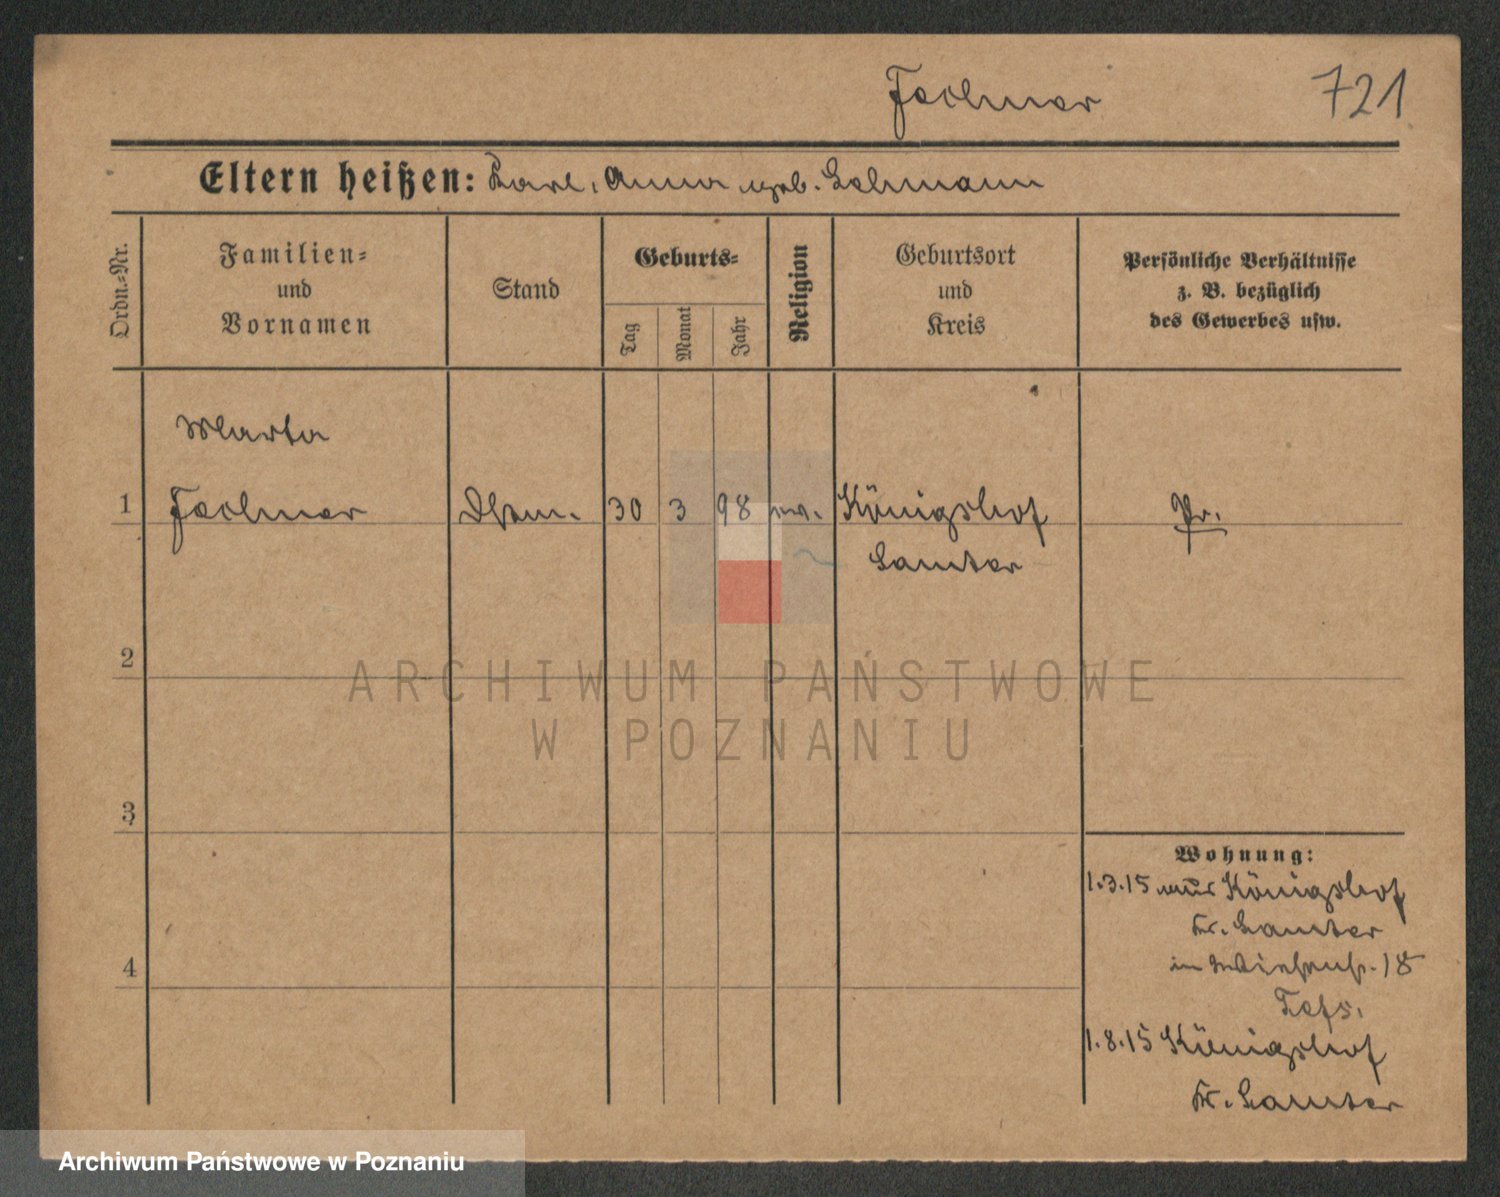 Fechner 721
Eltern heißen: Karl, Anna geb. Lehmann
Ordn.-Nr.
Familien-
und
Vornamen
Stand
Geburts-
Tag
Monat
Jahr
Religion
Geburtsort
und
Kreis
Persönliche Verhältnisse
z. B. bezüglich
des Gewerbes usw.
Marta
1 30 3 98 ev. Königshof Pr.
Samter
2
3
4
Wohnung:
1.3.15 aus Königshof
Kr. Samter
18
1.8.15 Königshof
Kr. Samter
ARCHIWUM PAŃSTWOWE
W POZNANIU
Archiwum Państwowe w Poznaniu